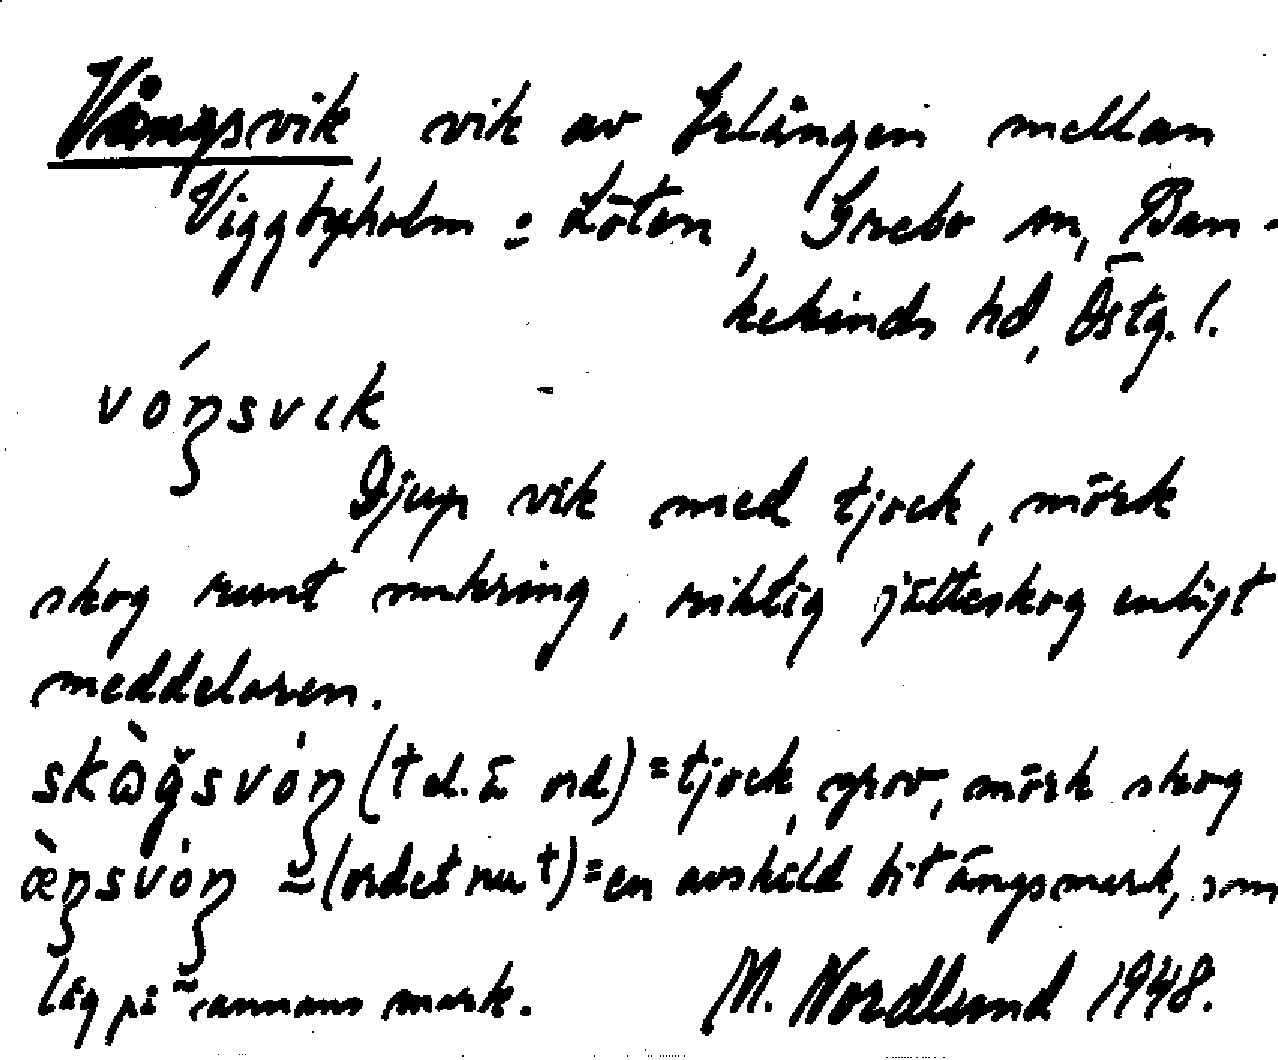 Vångsvik, vik av Erlången mellan
Viggbyholm o Löten, Grebo sn, Ban-
kekinds hd, Östg. l.
vóŋsvik
Djup vik med tjock, mörk
skog runt omkring, riktig jätteskog enligt
meddelaren.
skògsvóŋ († el. ord) = tjock, grov, mörk skog
æ̀ŋsvóŋ (ordet nu †) = en avskild bit ängsmark, som
låg på annans mark. M. Nordlund 1948.